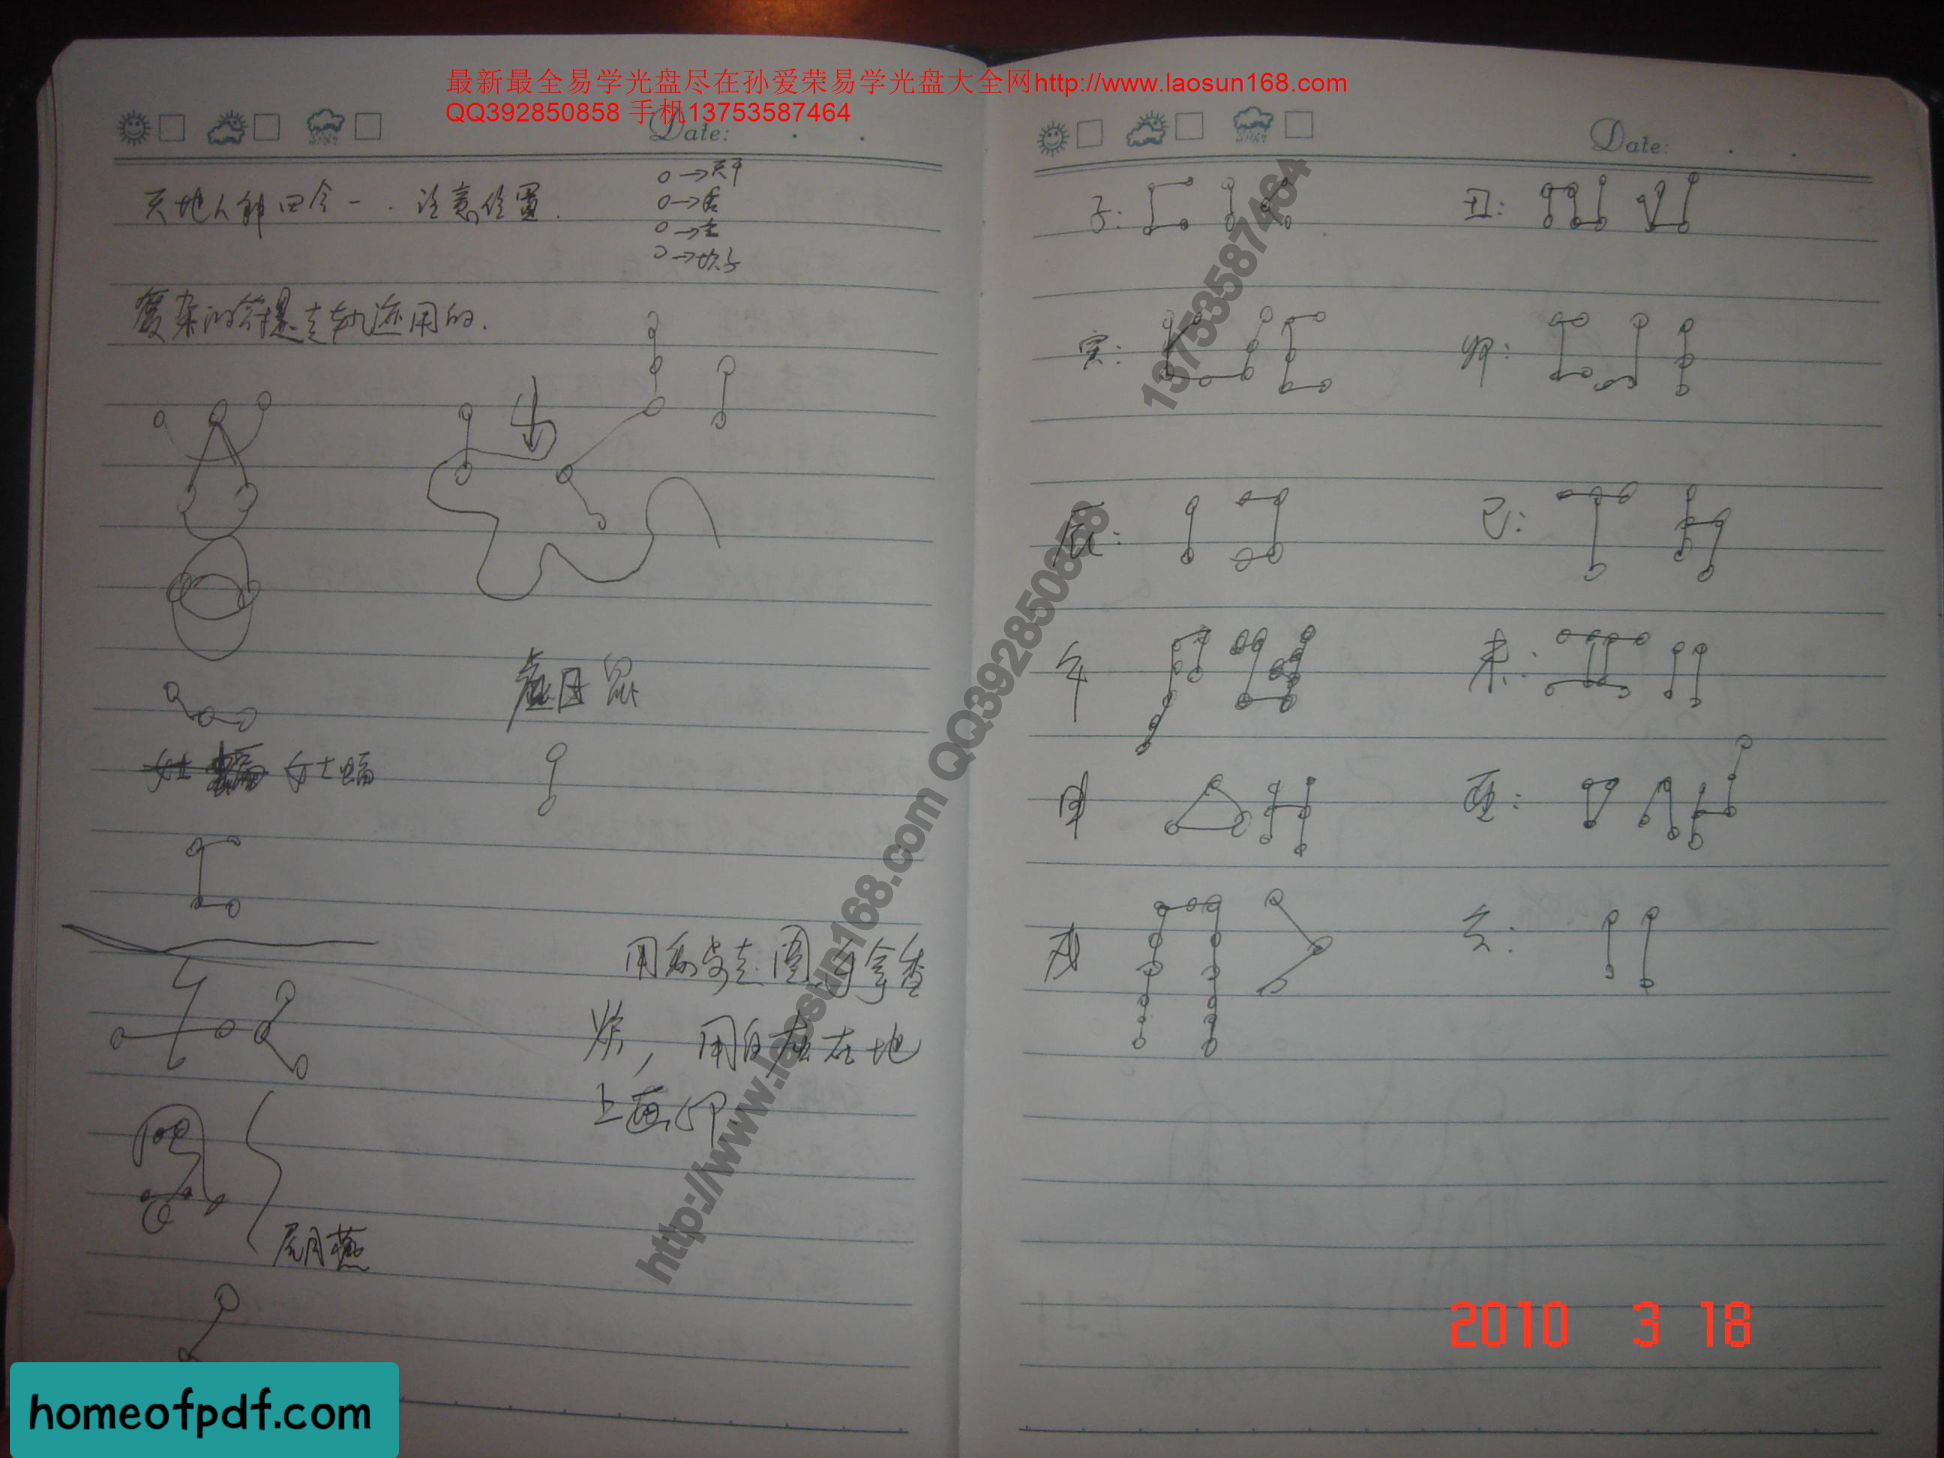 最新最全易学光盘尽在孙爱荣易学光盘大全网http://www.laosun168.com
QQ392850858 手机13753587464
Date:
天地人神四合一．注意位置．
复杂的符是走轨迹用的．
虚日鼠
女士蝠 女士蝠
上画
尾月燕
Date:
子：
丑：
寅：
卯：
辰：
巳：
午
未：
申
酉：
戌
亥：
http://www.laosun168.com QQ392850858 13753587464
2010 3 18
homeofpdf.com